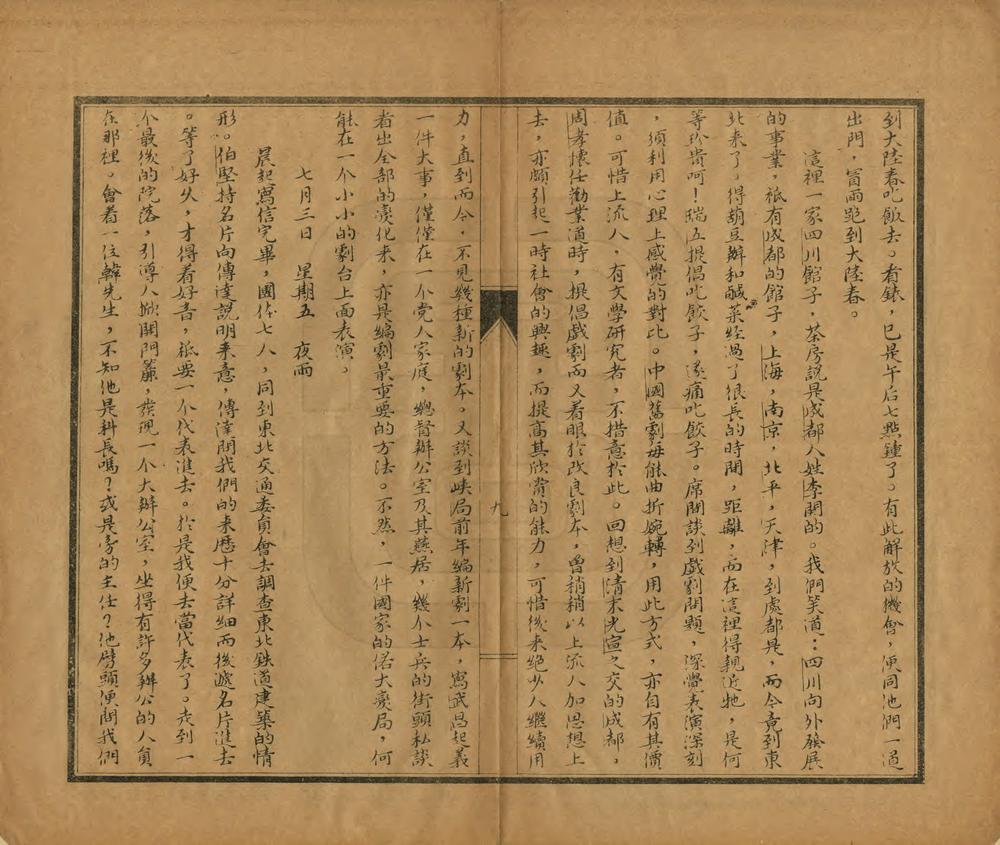 到大陸春吃飯去。看錶，已是午后七點鐘了。有此解放的機會，便同他們一道
出門，冒雨跑到大陸春。
這裡一家四川館子，茶房說是成都人姓李開的。我們笑道：四川向外發展
的事業，祇有成都的館子，上海，南京，北平，天津，到處都是，而今竟到東
北來了。得葫豆瓣和鹹菜經過了很長的時間，距離，而在這裡得親近牠，是何
等珍貴呵！瑞五提倡吃餃子，遂痛吃餃子。席間談到戲劇問題，深覺表演深刻
，須利用心理上感覺的對比。中國舊劇每能曲折婉轉，用此方式，亦自有其價
值。可惜上流人、有文學研究者，不措意於此。回想到清末光宣之交的成都，
周孝懷任勸業道時，提倡戲劇而又着眼於改良劇本，曾稍稍以上流人加思想上
去，亦頗引起一時社會的興趣，而提高其欣賞的能力，可惜後來絕少人繼續用
九
力，直到而今，不見幾種新的劇本。又談到峽局前年編新劇一本，寫武昌起義
一件大事，僅僅在一个党人家庭，總督辦公室及其燕居，幾个士兵的街頭私談
者出全部的變化來，亦是編劇最重要的方法。不然，一件國家的偌大變局，何
能在一个小小的劇台上面表演。
七月三日　星期五　夜雨
晨起寫信完畢，團体七人，同到東北交通委員會去調查東北鉄道建築的情
形。伯堅持名片向傳達說明來意，傳達問我們的來歷十分詳細而後遞名片進去
。等了好久，才得着好音，祇要一个代表進去。於是我便去當代表了。走到一
个最後的院落，引導人掀開門簾，發現一个大辦公室，坐得有許多辦公的人員
在那裡。會着一位韓先生，不知他是科長嗎？或是旁的主任？他劈頭便問我們